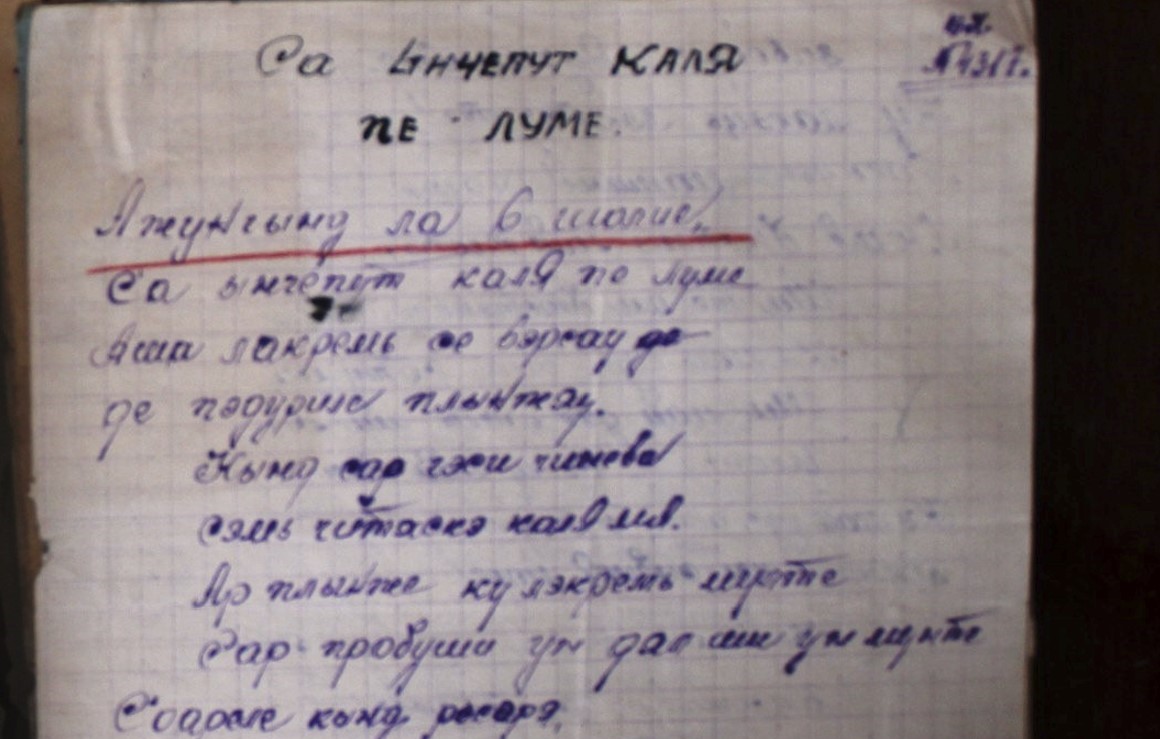 Са ынчепут каля
пе луме.
Ажунгынд ла 6
Са ынчепут каля пе луме
Аша лакремь се вэрсау де
де пэдуриле плынжяу.
Кынд сар гэси чинева
сэмь читаскэ каля мя.
Ар плынже ку лэкремь мулте
Сар пробуши ун дал ши ун мунте
Соареле кынд рэсаря,